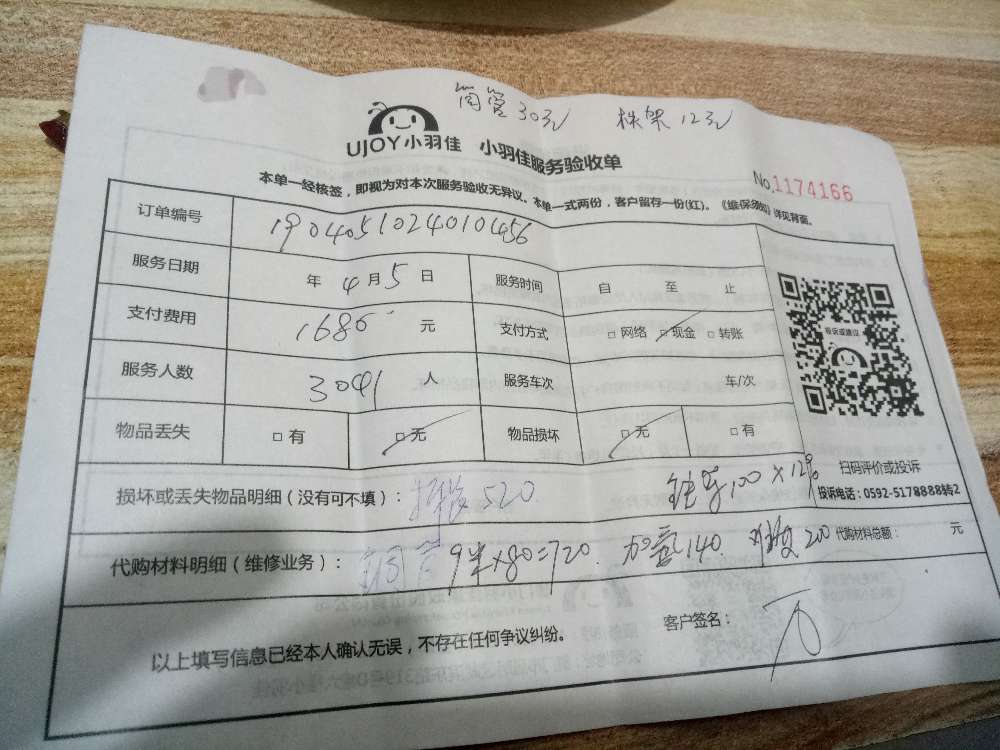 筒管30元 铁架12元
UJOY小羽佳 小羽佳服务验收单
No.1174166
本单一经核签，即视为对本次服务验收无异议。本单一式两份，客户留存一份(红)。《维保须知》详见背面。
订单编号 1904051024010456
服务日期 年 4月5日 服务时间 自 至 止
支付费用 1680 元 支付方式 □网络 □现金 □转账
投诉或建议
服务人数 3041 人 服务车次 车/次
物品丢失 □有 □无 物品损坏 □无 □有
扫码评价或投诉
投诉电话：0592-5178888转2
损坏或丢失物品明细（没有可不填）： 520 100×1
代购材料明细（维修业务）： 9米×80=720 加氟140 200 代购材料总额： 元
以上填写信息已经本人确认无误，不存在任何争议纠纷。 客户签名：